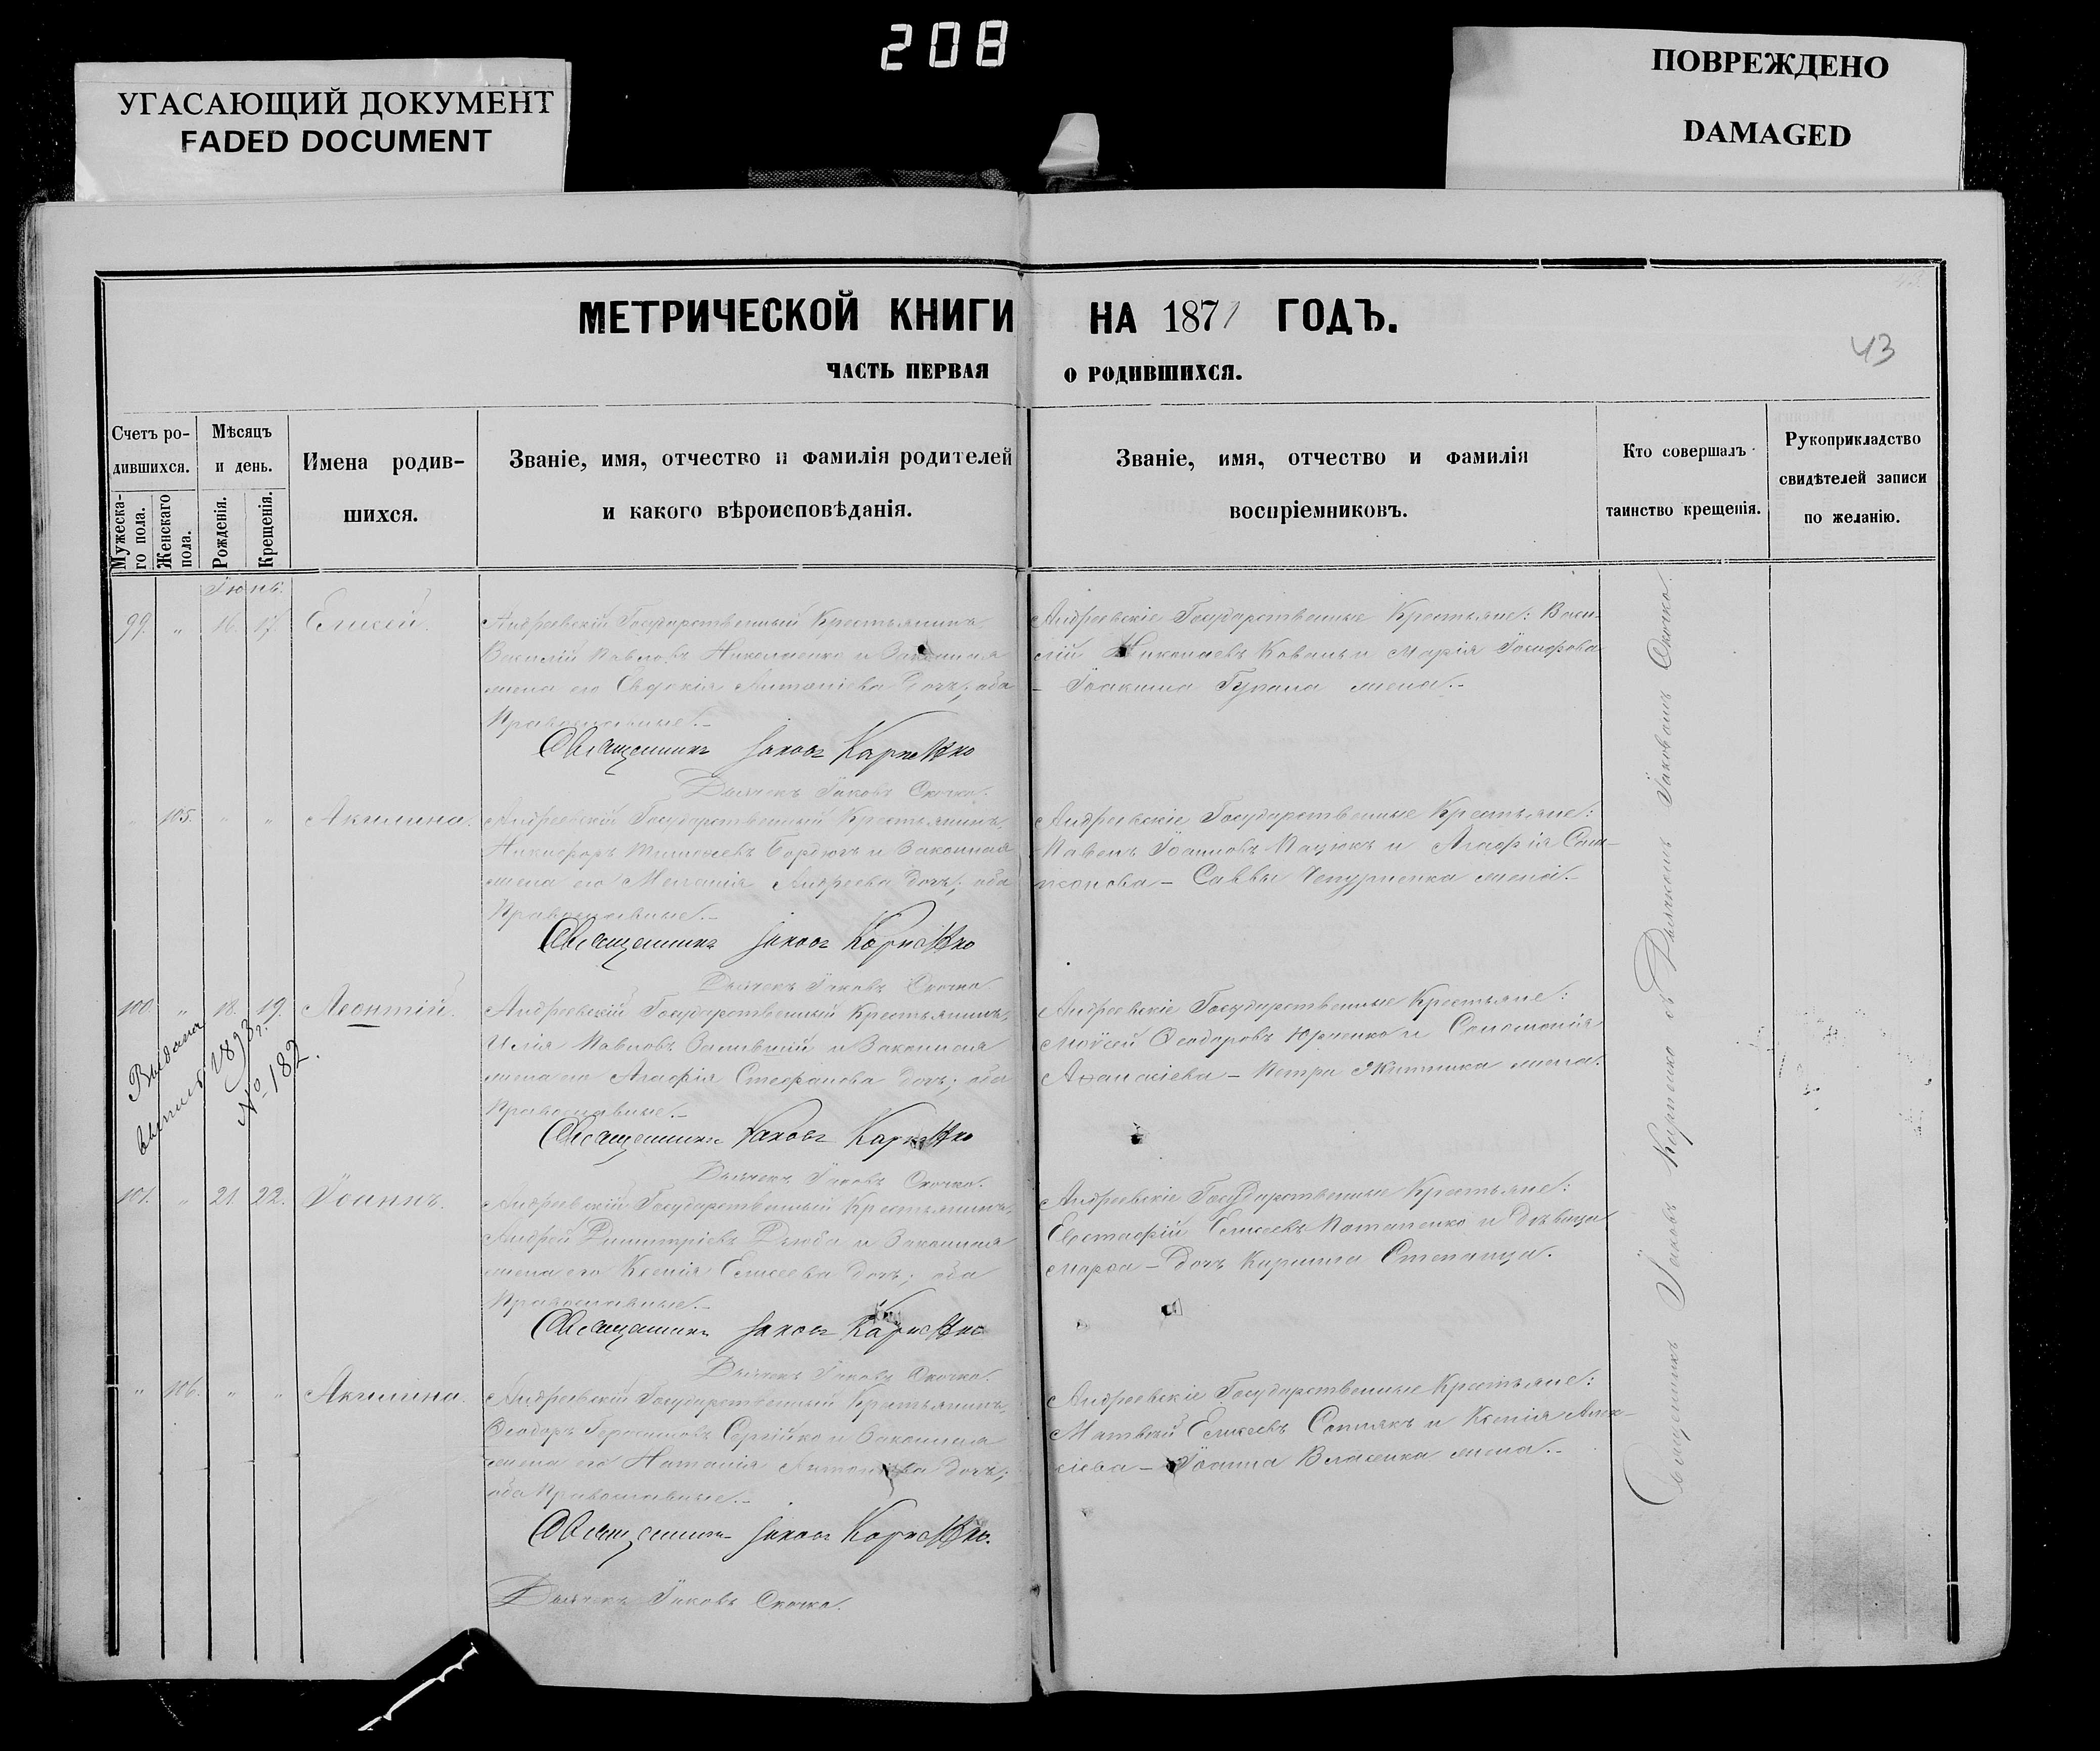 208
УГАСАЮЩИЙ ДОКУМЕНТ
FADED DOCUMENT
ПОВРЕЖДЕНО
DAMAGED
МЕТРИЧЕСКОЙ КНИГИ НА 1871 ГОДЪ.
43
ЧАСТЬ ПЕРВАЯ О РОДИВШИХСЯ.
Счетъ ро-
дившихся.
Мужеска-
го пола.
Женскаго
пола.
Мѣсяцъ
и день.
Рожденія.
Крещенія.
Имена родив-
шихся.
Званіе, имя, отчество и фамилія родителей
и какого вѣроисповѣданія.
Званіе, имя, отчество и фамилія
воспріемниковъ.
Кто совершалъ
таинство крещенія.
Рукоприкладство
свидѣтелей записи
по желанію.
Іюнь.
99. " 16. 17. Елисей.
Андреевскій Государственный Крестьянинъ,
Василій Павловъ Николаенко и Законная
жена его Евдокія Антоніева дочь; оба
Православные.-
Священникъ Іаковъ Карпенко
Дьячекъ Іаковъ Скочко.
Андреевскіе Государственные Крестьяне: Васи-
лій Николаевъ Коваль и Марія Іосифова
- Іоакима жена.-
" 105. " " Акилина.
Андреевскій Государственный Крестьянинъ,
Никифоръ и Законная
жена его Меланія Андреева дочь; оба
Православные.-
Священникъ Іаковъ Карпенко
Дьячекъ Іаковъ Скочко
Андреевскіе Государственные Крестьяне:
Павелъ Іоанновъ Пацюкъ и Агафія Сам-
псонова - Саввы Чепурненка жена.-
100. " 18. 19. Леонтій.
Выдана
1893 г.
№ 182.
Андреевскій Государственный Крестьянинъ,
Илія Павловъ и Законная
жена его Агафія Стефанова дочь; оба
Православные.-
Священникъ Іаковъ Карпенко
Дьячекъ Іаковъ Скочко.
Андреевскіе Государственные Крестьяне:
Моѵсей Ѳеодоровъ Юрченко и Соломонія
Аѳанасіева - Петра Житника жена.
101. " 21. 22. Іоаннъ.
Андреевскій Государственный Крестьянинъ,
Андрей Димитріевъ Дзюба и Законная
жена его Ксенія Елисеева дочь; оба
Православные.-
Священникъ Іаковъ Карпенко
Дьячекъ Іаковъ Скочко.
Андреевскіе Государственные Крестьяне:
Евстафій Елисеевъ Потапенко и дѣвица
Марѳа - дочь Кирилла Степанца.
" 106. " " Акилина.
Андреевскій Государственный Крестьянинъ,
Ѳеодоръ Герасимовъ Сергійко и Законная
жена его Наталія Антоніева дочь;
оба Православные.-
Священникъ Іаковъ Карпенко.
Дьячекъ Іаковъ Скочко.
Андреевскіе Государственные Крестьяне:
Матвій Елисеевъ и Ксенія Алек-
сіева - Іоанна Власенка жена.-
Священникъ Іаковъ Карпенко съ Дьячкомъ Іаковомъ Скочко.